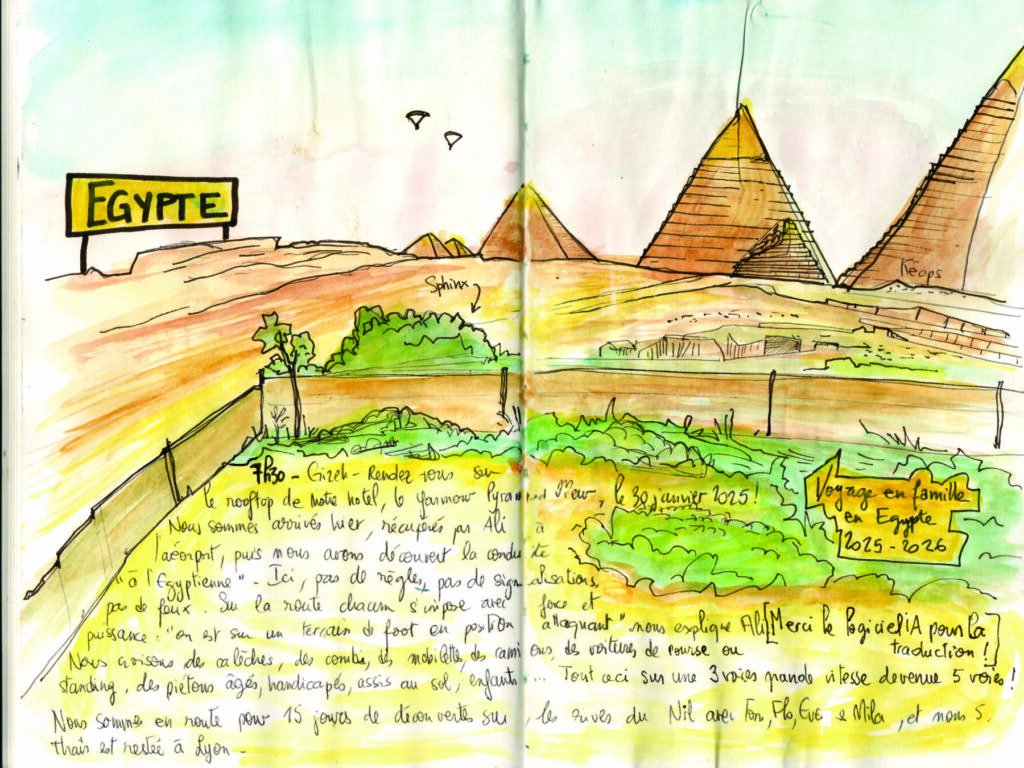 EGYPTE
Sphinx
Keops
7h30 - Gizeh - Rendez vous sur
le rooftop de notre hotel, le Yasmour Pyramid View, le 30 janvier 2025 !
Nous sommes arrivés hier, récupérés par Ali à
l'aéroport, puis nous avons découvert la conduite
"à l'Egyptienne" - Ici, pas de règles, pas de signalisations,
pas de feux. Sur la route chacun s'impose avec force et
puissance : "on est sur un terrain de foot en position attaquant" nous explique Ali [Merci le logiciel iA pour la
traduction !]
Nous croisons des calèches, des combis, des mobilettes, des camions, des voitures de course ou
standing, des piétons âgés, handicapés, assis au sol, enfants ... Tout ceci sur une 3 voies grande vitesse devenue 5 voies !
Nous sommes en route pour 15 jours de découvertes sur les rives du Nil avec Flo, Eve & Mila, et nous 5.
Thaïs est restée à Lyon -
Voyage en famille
en Egypte
2025 - 2026